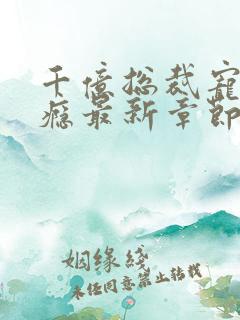 千億总裁寵
瘾最新章節
姻缘錢
未经同意禁止转载